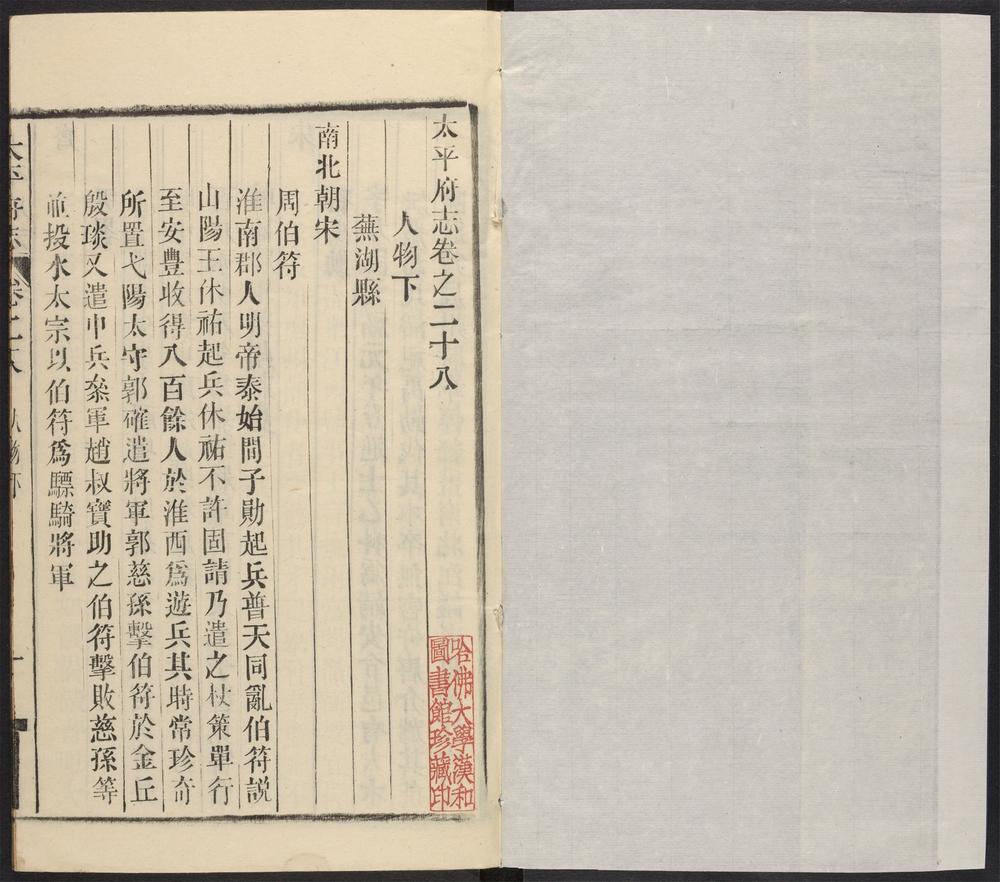 太平府志卷之二十八
人物下
蕪湖縣
南北朝宋
周伯符
淮南郡人明帝泰始間子勛起兵普天同亂伯符説
山陽王休祐起兵休祐不許固請乃遣之杖策單行
至安豐收得八百餘人於淮西爲遊兵其時常珍奇
所置弋陽太守郭確遣將軍郭慈孫擊伯符於金丘
殷琰又遣中兵叅軍趙叔寶助之伯符擊敗慈孫等
並投水太宗以伯符爲驃騎將軍
哈佛大學漢和
圖書館珍藏印